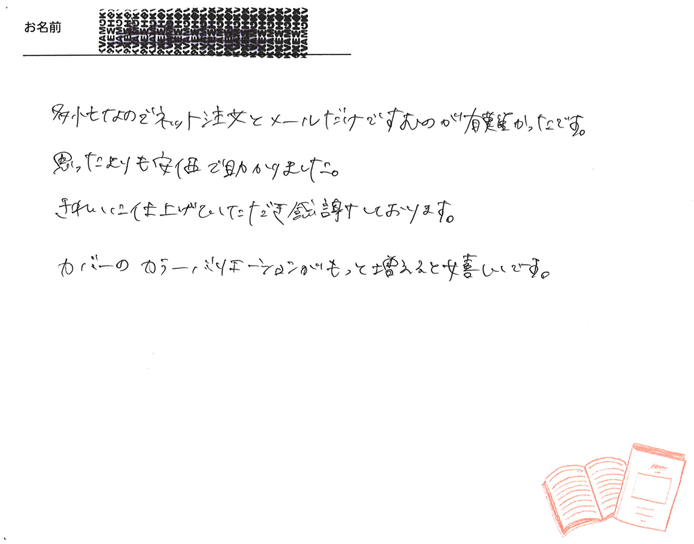 お名前
多忙なのでネット注文とメールだけですむのが有難かったです。
思ったよりも安価で助かりました。
きれいに仕上げていただき感謝しております。
カバーのカラーバリエーションがもっと増えると嬉しいです。